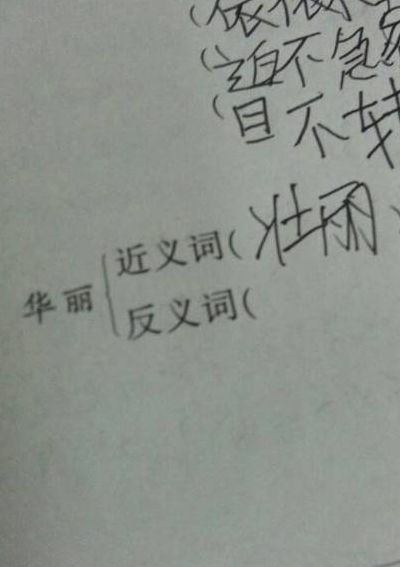 (依依不
(迫不急
(目不转
近义词(壮丽)
华丽
反义词(